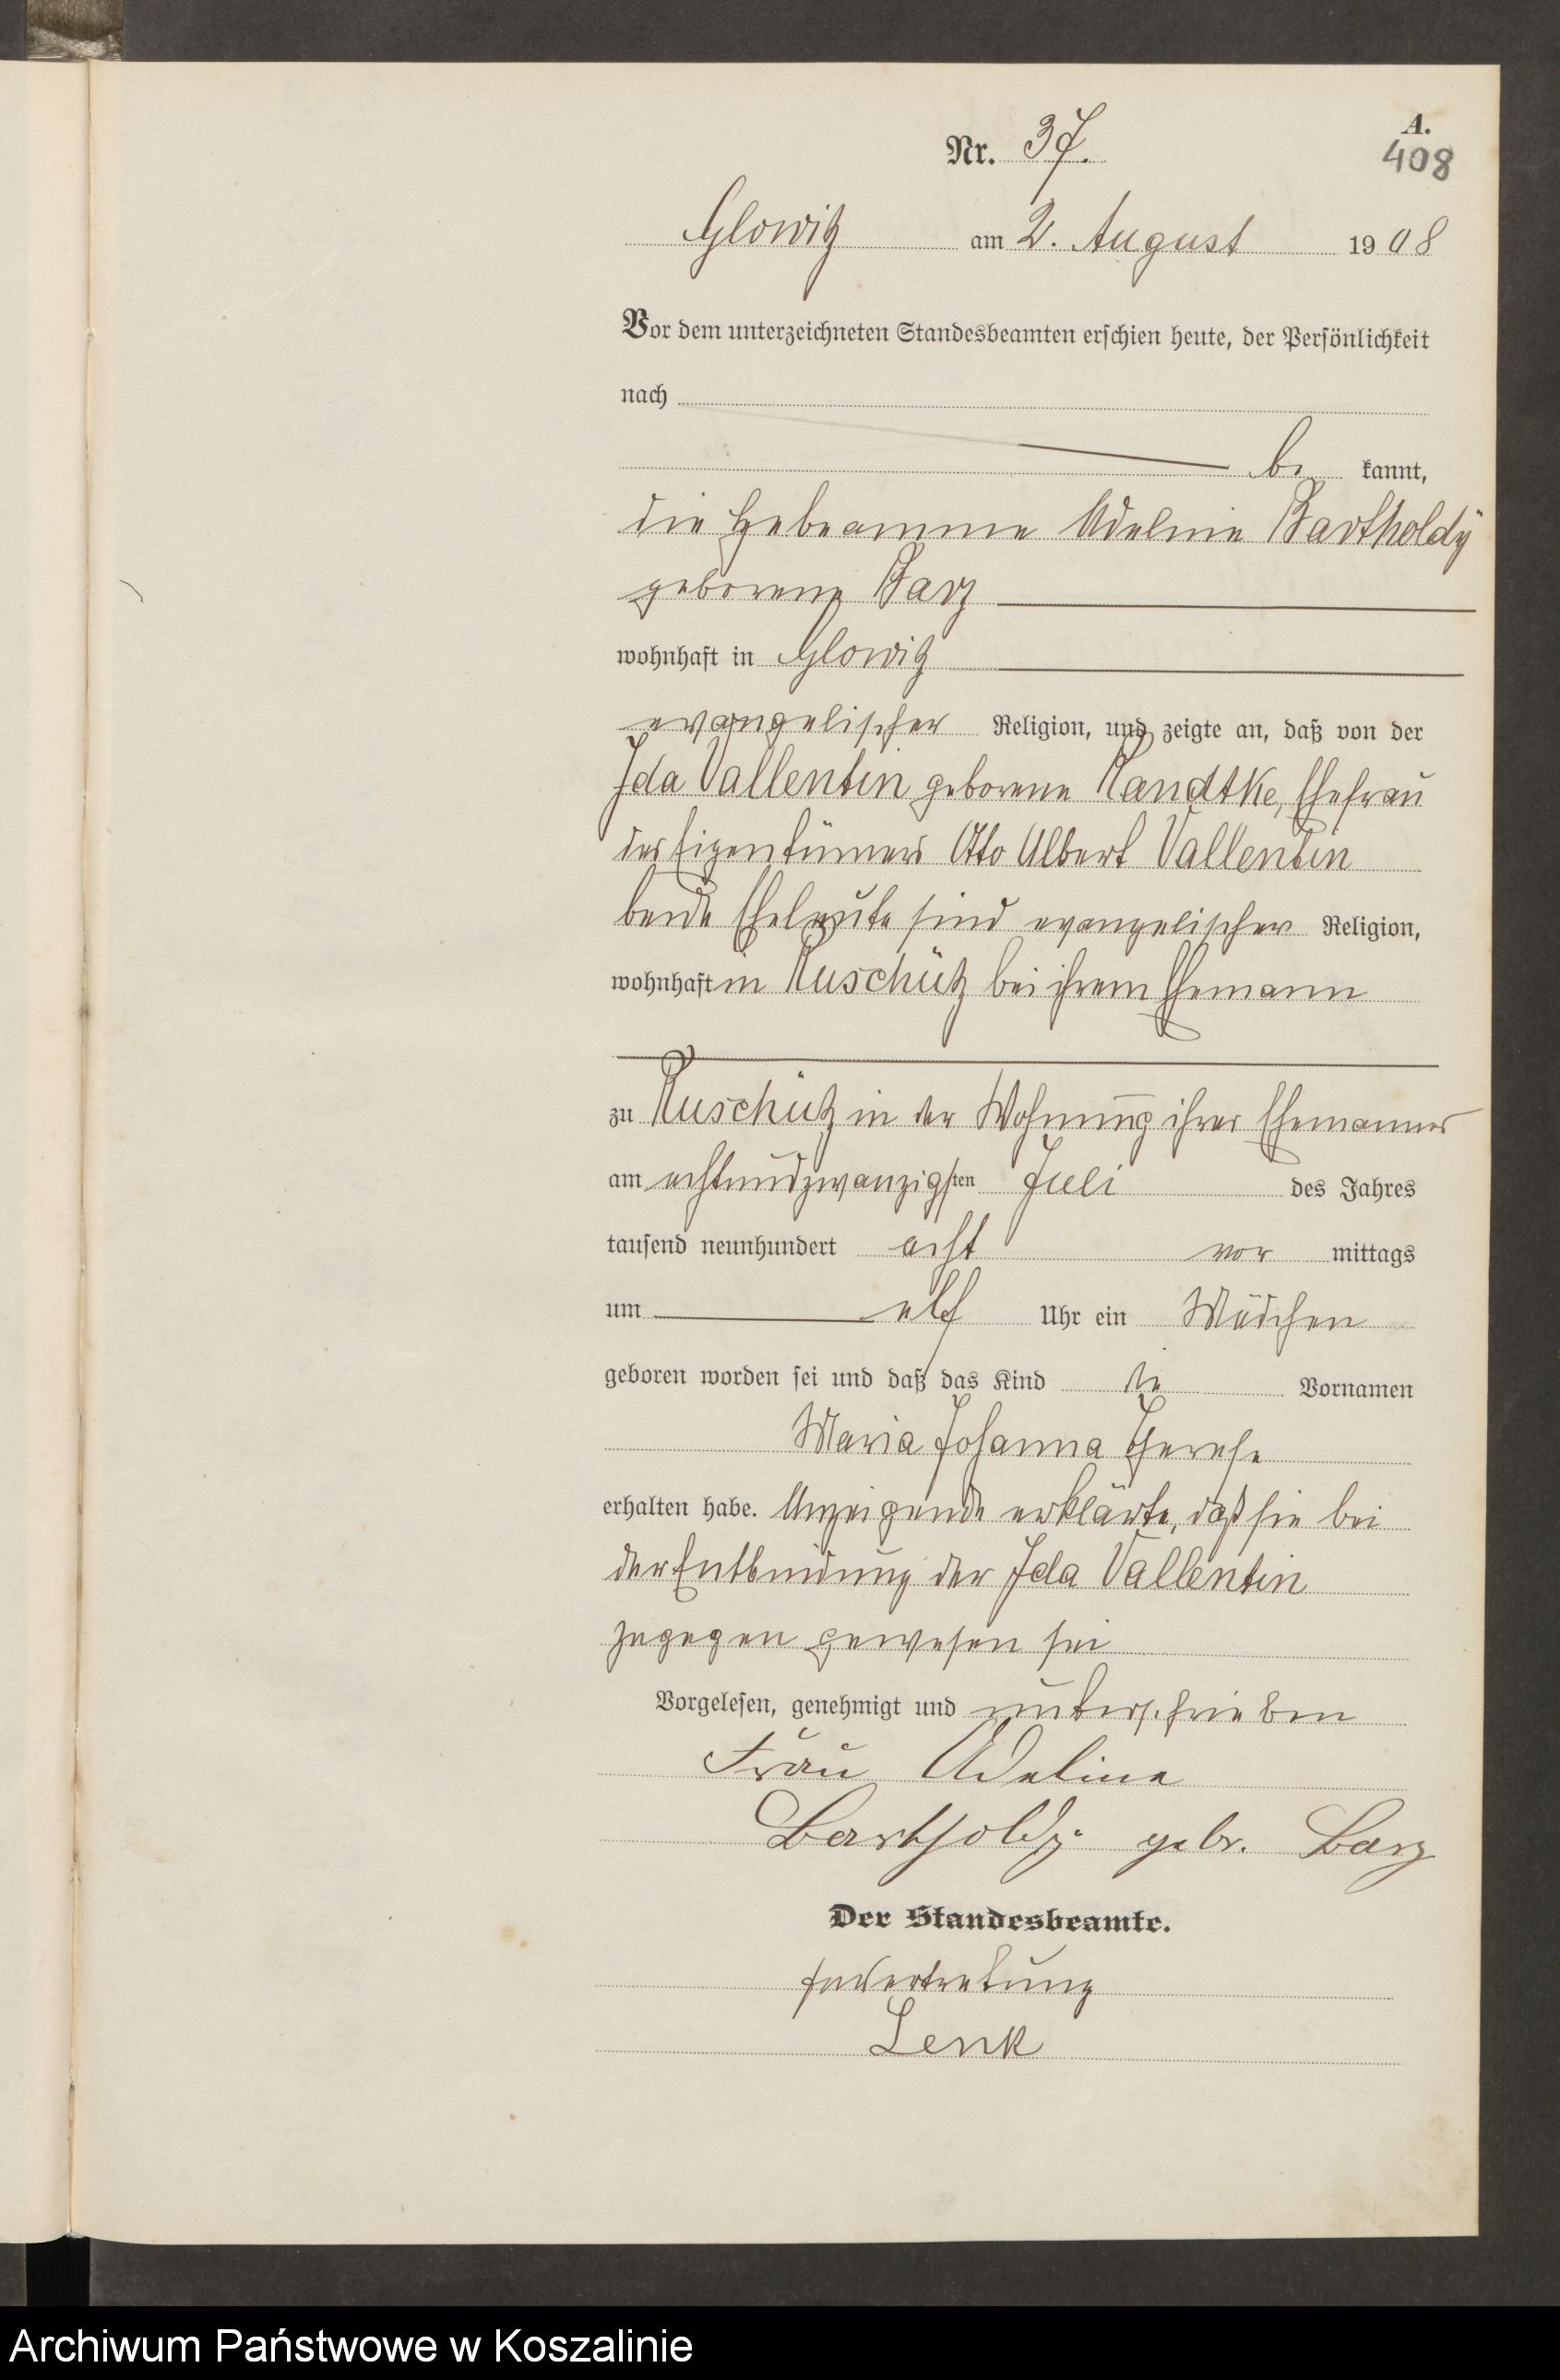 A.
Nr. 37.
408
Glowitz am 2. August 1908
Vor dem unterzeichneten Standesbeamten erschien heute, der Persönlichkeit
nach
be kannt,
die Hebeamme Adeline Bartholdÿ
geborene Barz
wohnhaft in Glowitz
evangelischer Religion, und zeigte an, daß von der
Ida Vallentin geborene Randtke, Ehefrau
des Eigentümers Otto Albert Vallentin
beide Eheleute sind evangelischer Religion,
wohnhaft in Ruschütz bei ihrem Ehemann
zu Ruschütz in der Wohnung ihres Ehemannes
am achtundzwanzigsten Juli des Jahres
tausend neunhundert acht vor mittags
um elf Uhr ein Mädchen
geboren worden sei und daß das Kind die Vornamen
Maria Johanna Therese
erhalten habe. Anzeigende erklärte, daß sie bei
der Entbindung der Ida Vallentin
zugegen gewesen sei
Vorgelesen, genehmigt und unterschrieben
Frau Adeline
Bartholdy gebr. Barz
Der Standesbeamte.
In Vertretung
Lenk
Archiwum Państwowe w Koszalinie